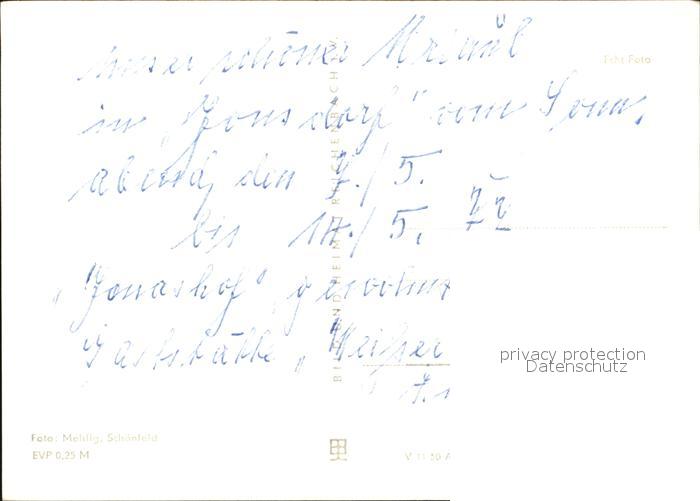 Unser schöner Urlaub
in "Jonsdorf" vom Sonn,
abend, den 7./5.
bis 14./5. 77
"Jonashof", gewohnt
Gaststätte "Weißer
Echt Foto
BILD UND HEIMAT REICHENBACH
privacy protection
Datenschutz
Foto: Mehlig, Schönfeld
EVP 0,25 M
V 11 50 A